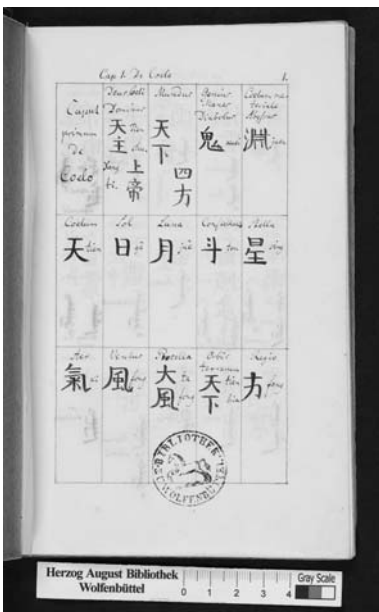 Cap. 1. De Coelo 1.
Caput
primum
De
Coelo
Deus Coeli
Dominus
天主
上帝
Xang
ti.
Mundus
天下
四方
Genius
Manes
Diabolus
鬼
Coelum
淵
Coelum
天 tien
Sol
日
Luna
月
斗
Stella
星
Aer
氣
Ventus
風 fong
Procella
大風
ta
fong
Orbis
terrarum
天下
tien
hia
Regio
方 fong
BIBLIOTHEK
WOLFENBÜTTEL
Herzog August Bibliothek
Wolfenbüttel
0 1 2 3 4
Gray Scale